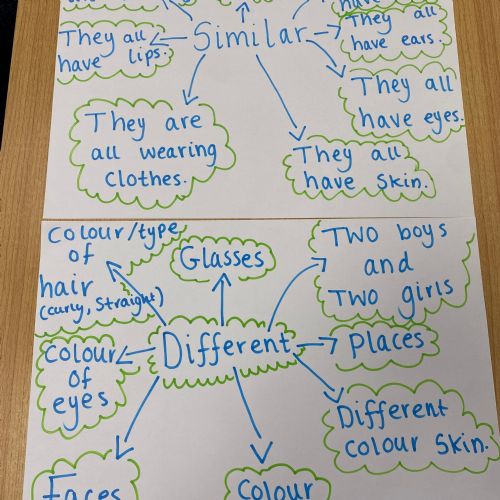 have
They all
have ears.
They all
have lips.
Similar
They all
have eyes.
They are
all wearing
clothes.
They all
have skin.
Colour/type
of
hair
(curly, straight)
Glasses
Two boys
and
Two girls
Different
Places
Colour
of
eyes
Different
colour skin.
Faces
Colour